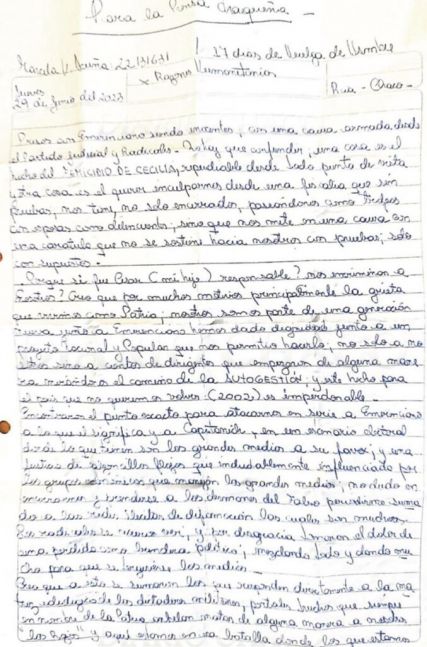 Para la Prensa Chaqueña -
17 dias de Huelga de Hambre
Marcela V. Acuña 22131631
x Razones Humanitarias
Jueves
29 de Junio del 2023
Rcia - Chaco -
Presos con Emerenciano siendo inocentes, con una causa armada desde
el Partido Judicial y Radicales - No hay que confundir, una cosa es el
hecho del FEMICIDIO DE CECILIA, repudiable desde todo punto de vista
y otra cosa es el querer inculparnos desde una fiscalia que sin
pruebas, nos tiene, no solo encerrados, paseandonos como trofeos
con esposas como delincuentes, sino que nos mete en una causa con
una caratula que no se sostiene hacia nosotros con pruebas, solo
con supuestos -
Porque si fue Cesar (mi hijo) responsable? nos incriminan a
nosotros? Creo que por muchos motivos principalmente la grieta
que vivimos como Patria; nosotros somos parte de una generación
nueva junto a Emerenciano hemos dado dignidad junto a un
proyecto Nacional y Popular que nos permitio hacerlo, no solo a no
sotros sino a cientos de dirigentes que empezaron de alguna mane
ra mirandose el camino de la AUTOGESTIÓN, y este hecho para
el pais que no queremos volver (2002) es imperdonable -
Encontraron el punto exacto para atacarnos en serie a Emerenciano
a lo que el significa y a Capitanich, en un escenario electoral
donde lo que tienen son los grandes medios a su favor, y una
Justicia de que indudablemente influenciado por
los grupos económicos que manejan los grandes medios, no dudo en
encerrarnos y prenderse a los desmanes del Falso periodismo suma
do a las redes ilicitas de difamación las cuales son muchas.
Los radicales se y por desgracia tomaron el dolor de
una perdida como bandera politica, mezclando todo y dando mu
cho para que se los medios -
Creo que a esto se sumaron los que responden directamente a la ma
triz ideologica de las dictaduras militares, que siempre
en nombre de la Patria matan de alguna manera a nuestros
"los hijos" y aqui estamos en esa batalla donde los que estamos